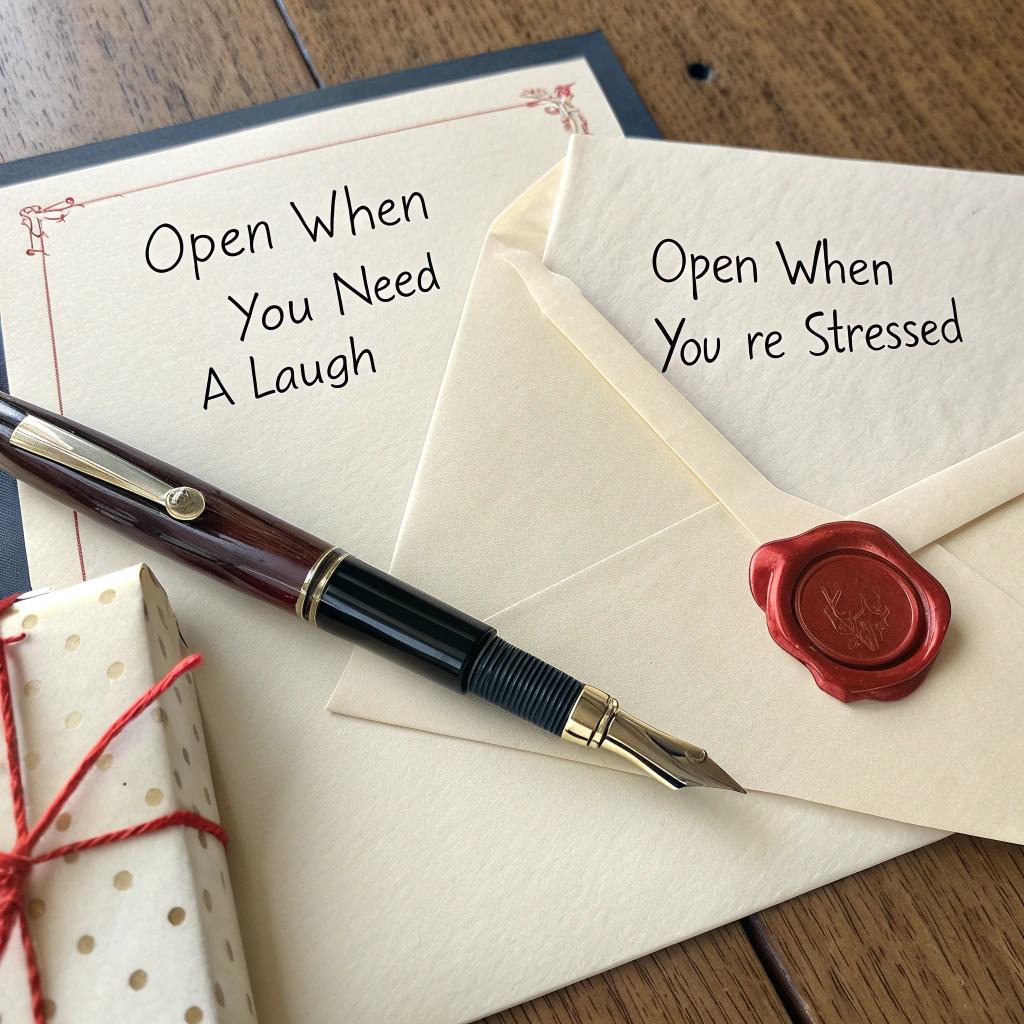 Open When
You Need
A Laugh
Open When
You re Stressed